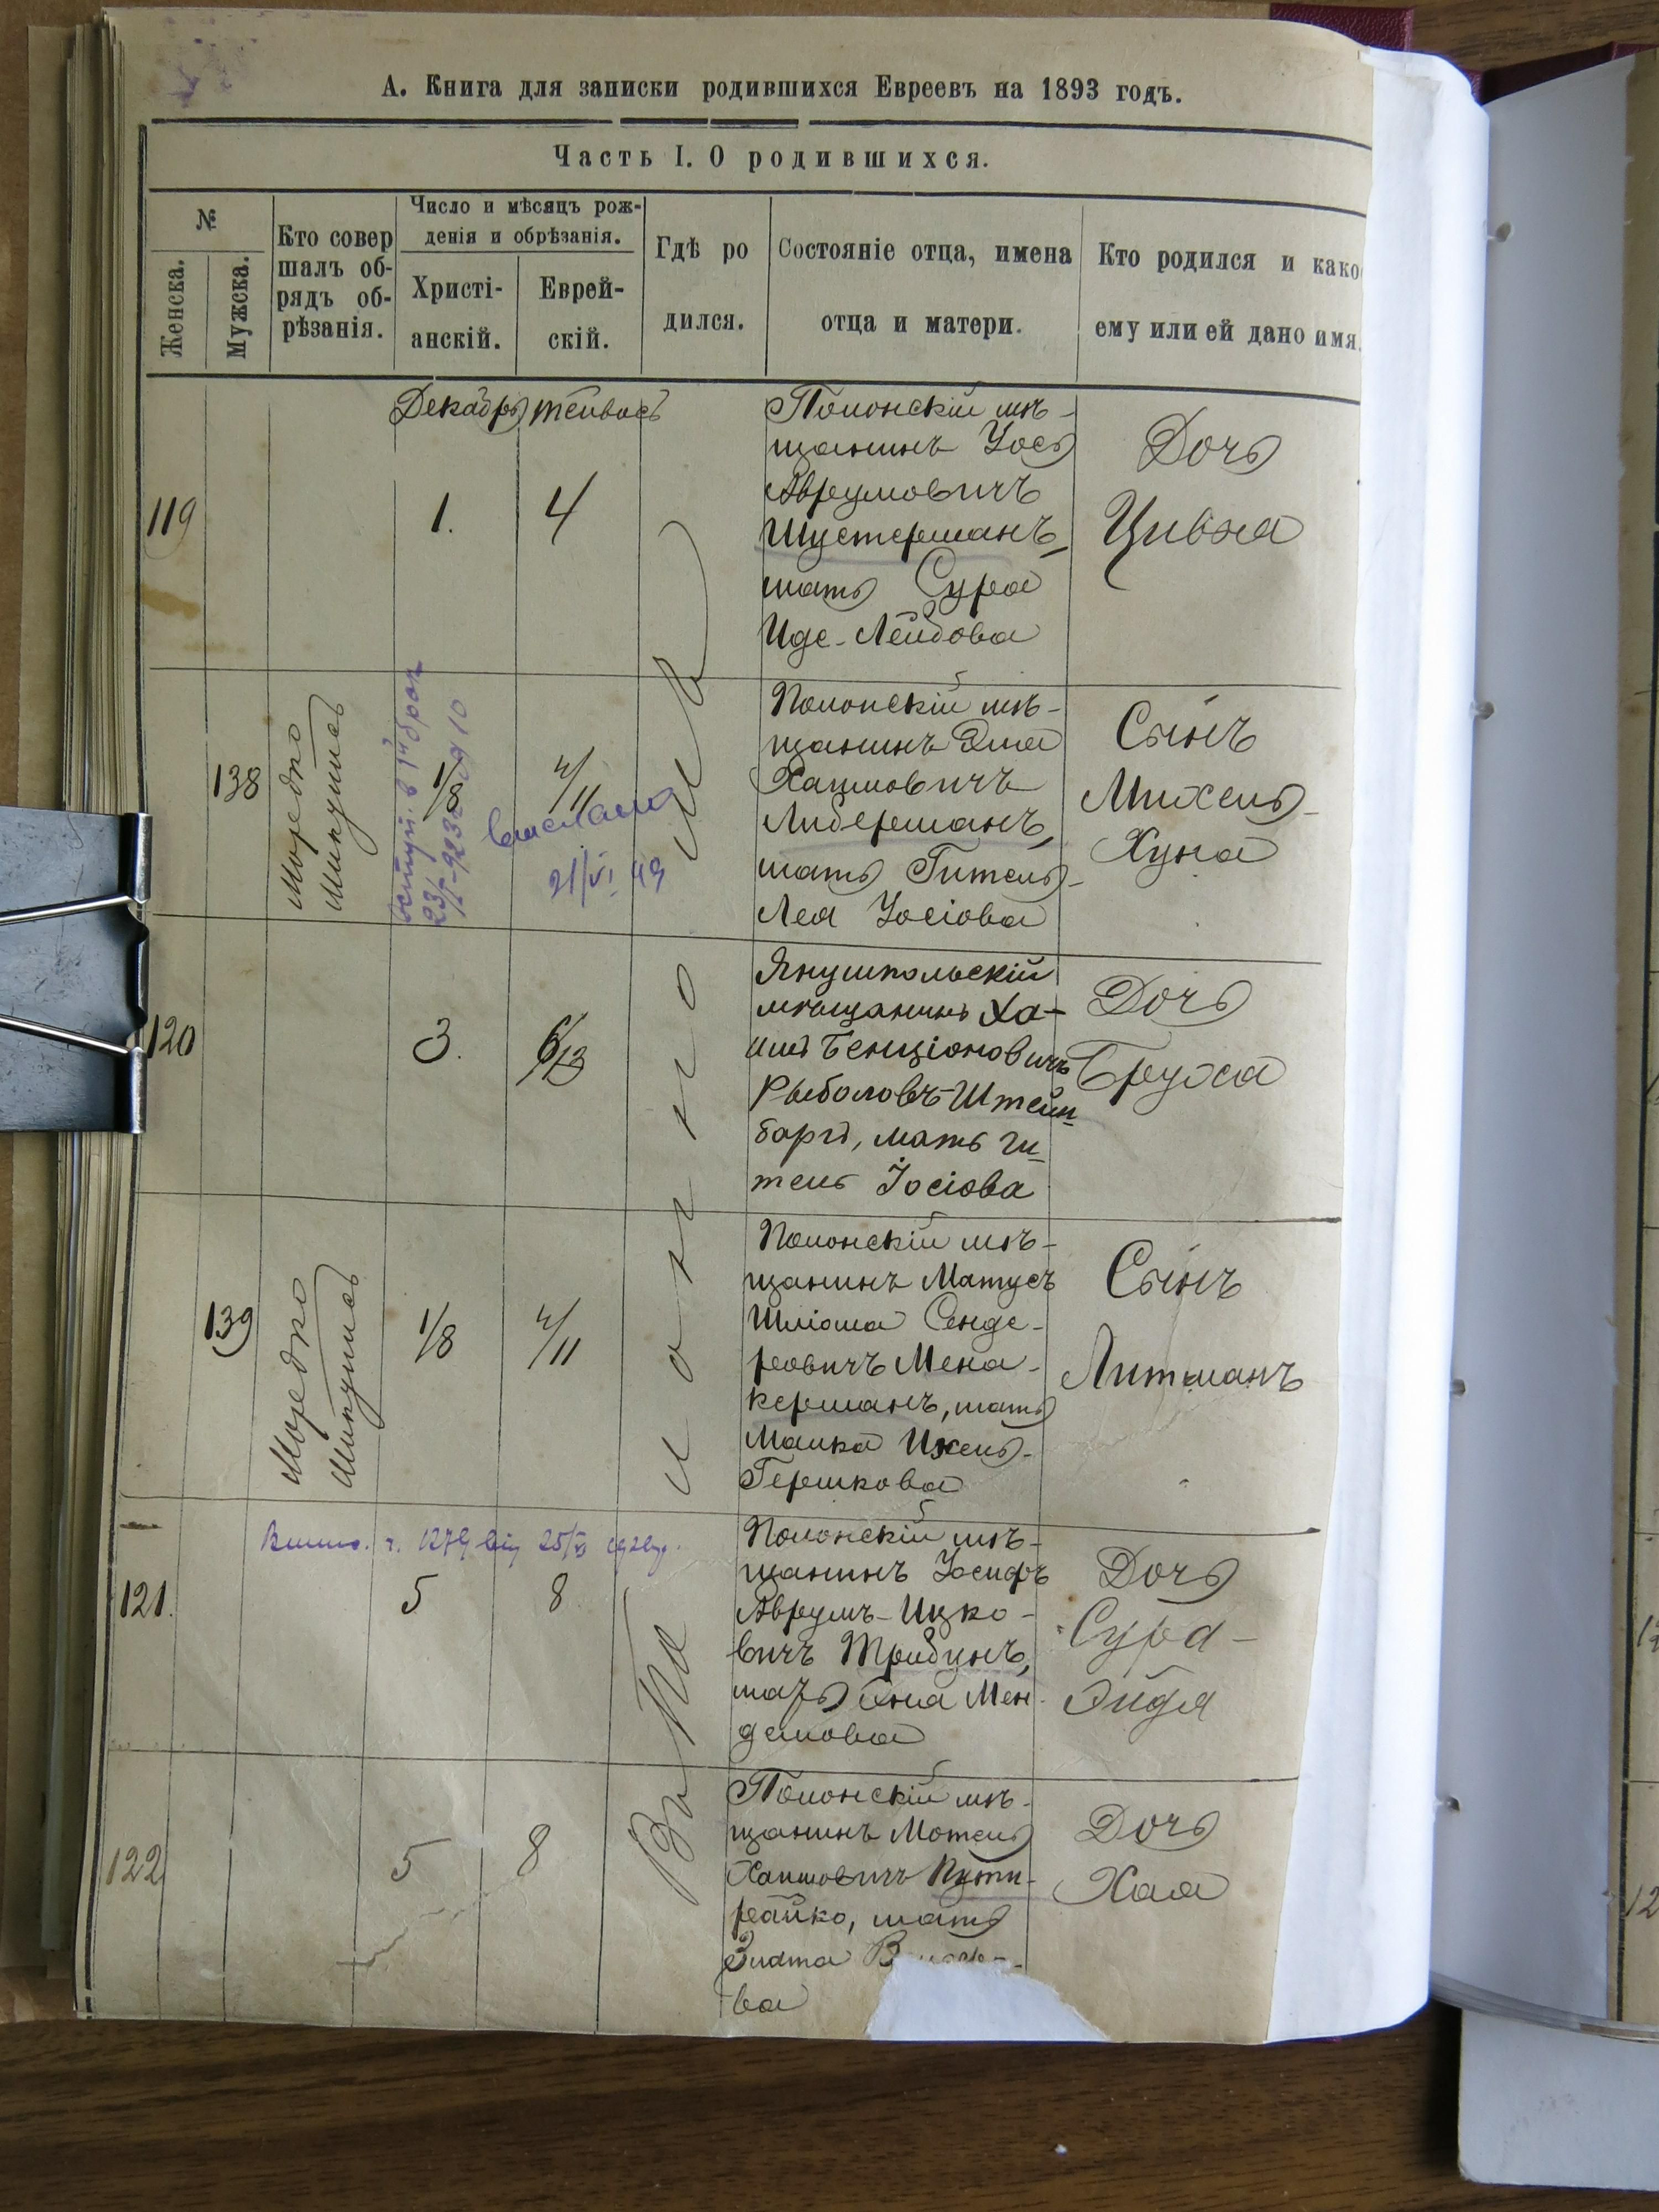 А. Книга для записки родившихся Евреевъ на 1893 годъ.
Часть I. О родившихся.
№
Женска.
Мужска.
Кто совер
шалъ об-
рядъ об-
рѣзанія.
Число и мѣсяцъ рож-
денія и обрѣзанія.
Христі-
анскій.
Еврей-
скій.
Гдѣ ро
дился.
Состояніе отца, имена
отца и матери.
Кто родился и како
ему или ей дано имя.
Декабрь
Въ мѣстечкѣ
119
1.
4
Полонскій мѣ-
щанинъ Іось
Аврумовичъ
Шустерманъ,
мать Сура
Иде-Лейбова
Дочь
Цивья
138
Мордко
1/8
4/11
21/VI 49
Полонскій мѣ-
щанинъ
Хаимовичъ
Либерманъ,
мать Гитель-
Лея Іосіова
Сынъ
Михель-
Хуна
120
3.
6/13
Янушпольскій
мѣщанинъ Ха-
имъ Бенціоновичъ
Рыболовъ-Штейн-
баргъ, мать Ги-
тель Іосіова
Дочь
Бруха
139
Мордко
1/8
4/11
Полонскій мѣ-
щанинъ Матусъ
Шліома Сенде-
ровичъ Мена-
керманъ, мать
Малка Ихель-
Гершкова
Сынъ
Литманъ
121.
5
8
Полонскій мѣ-
щанинъ Іосифъ
Аврумъ-Ицко-
вичъ Трибунъ,
мать Мен-
делова
Дочь
Сура-
Эйдя
122
5
8
Полонскій мѣ-
щанинъ Мотель
Хаимовичъ Пути-
райко, мать
Зисла
ва
Дочь
Хая